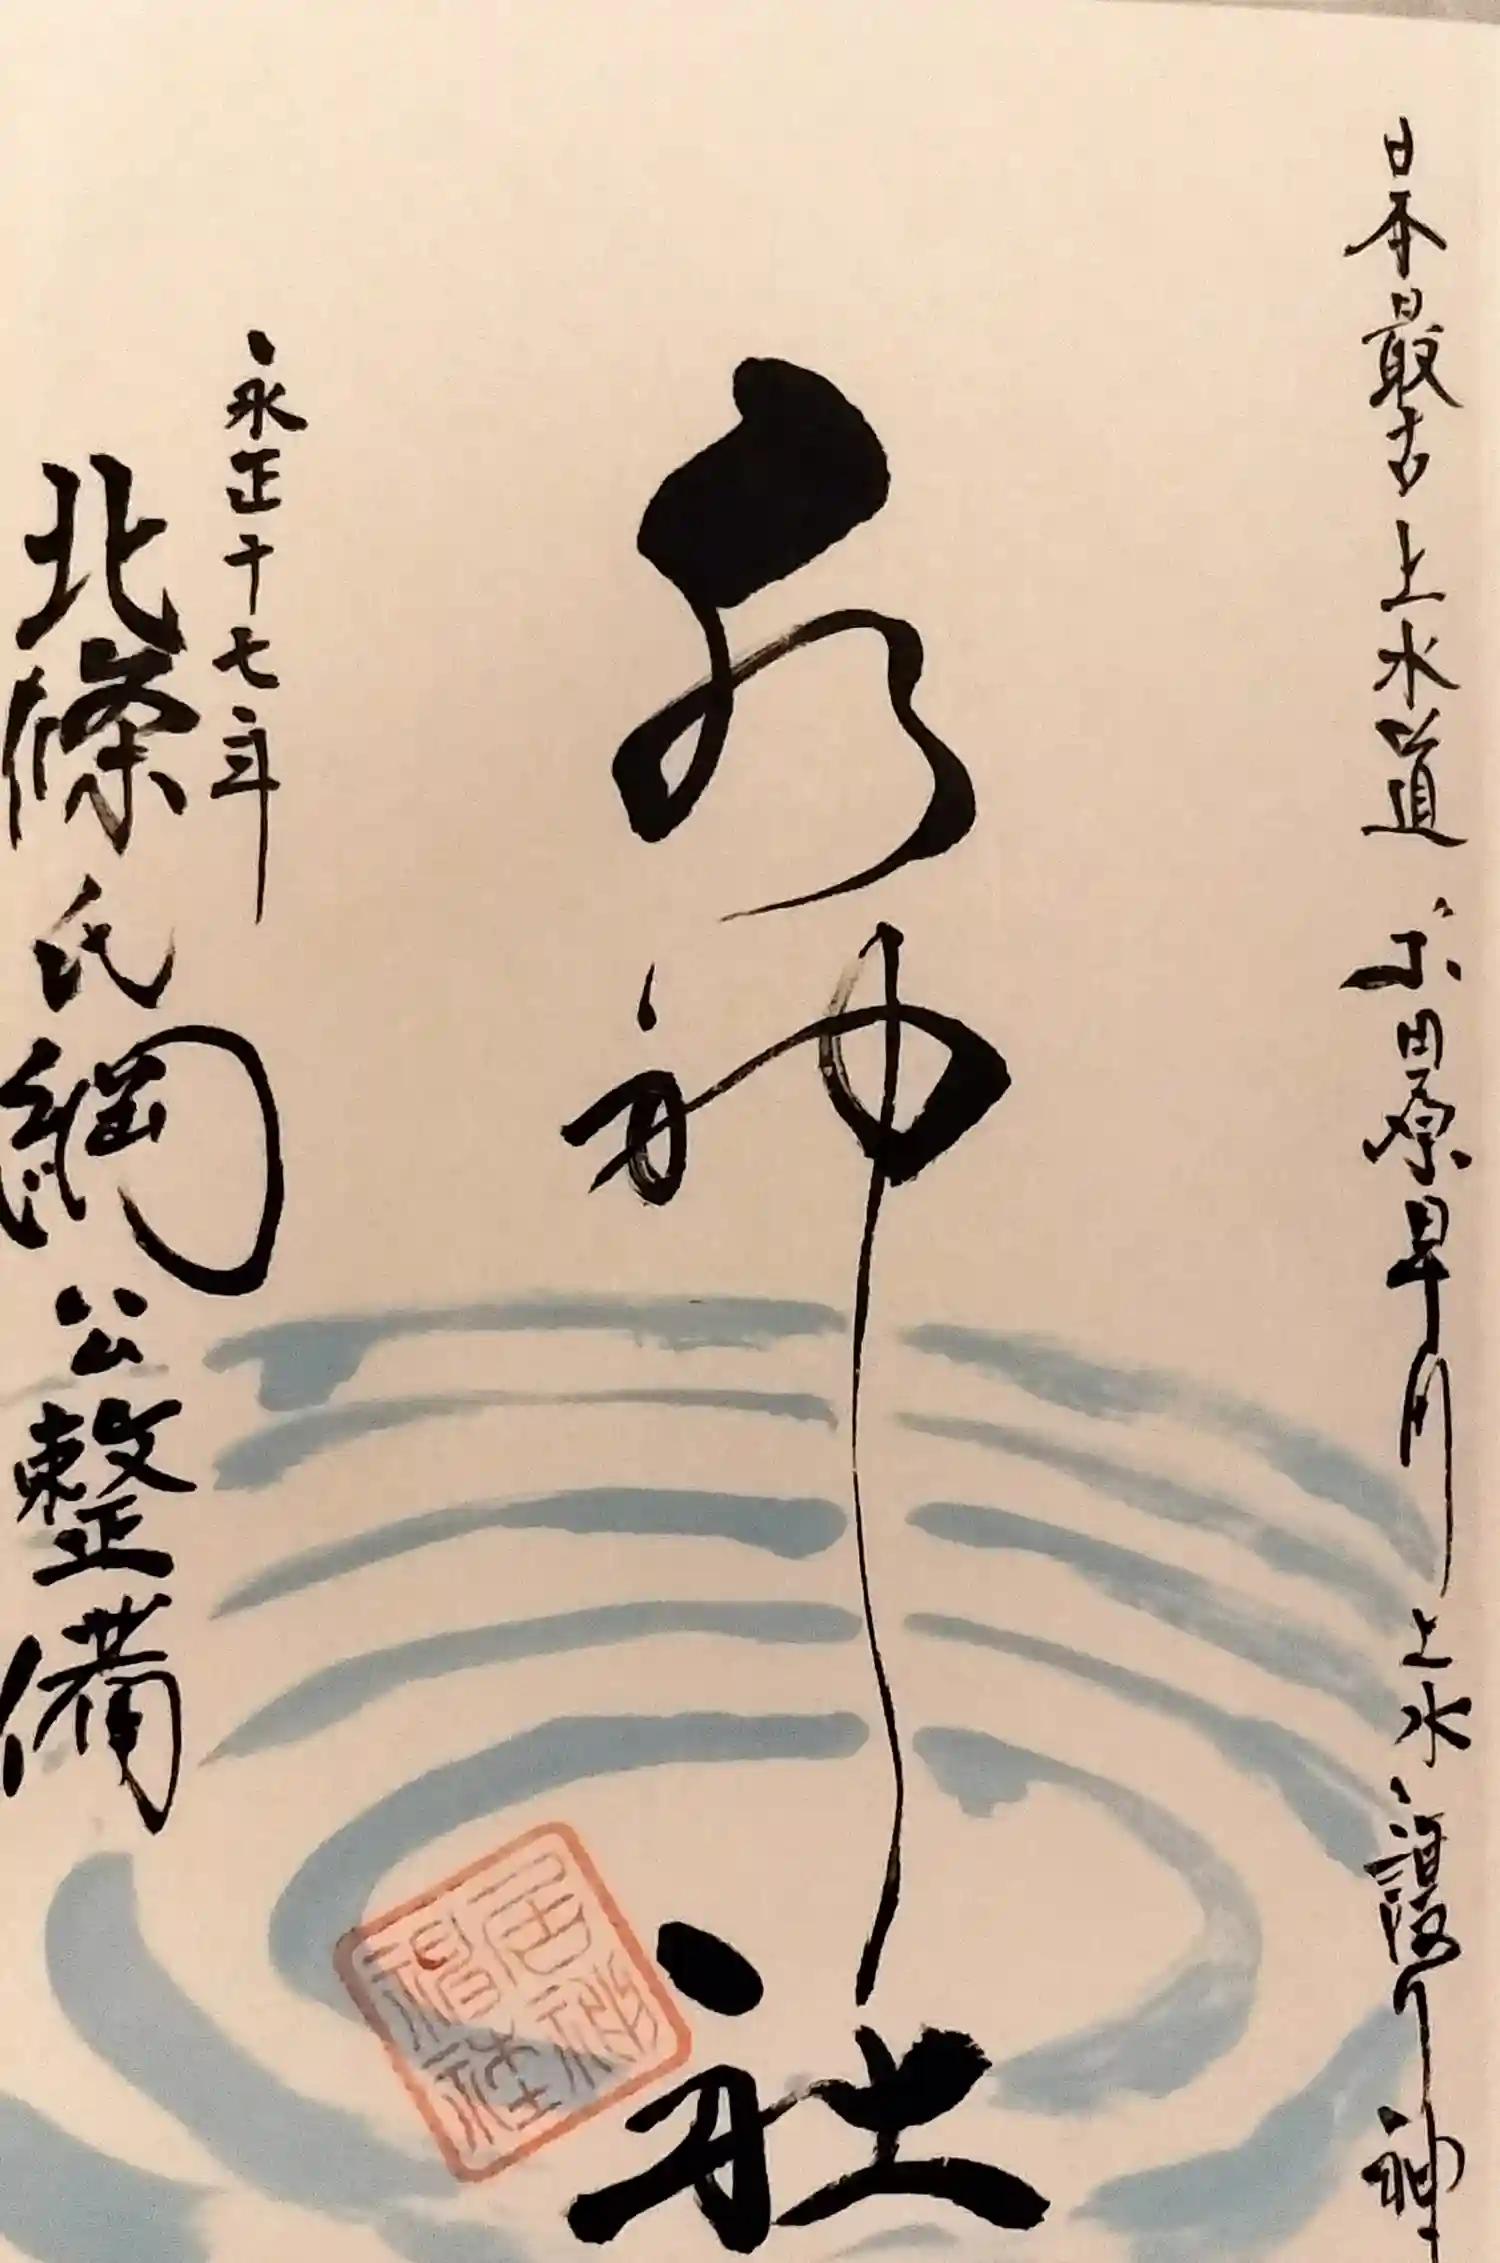 日本最古上水道 小田原早川上水 護り神
水神社
永正十七年
北條氏綱公整備